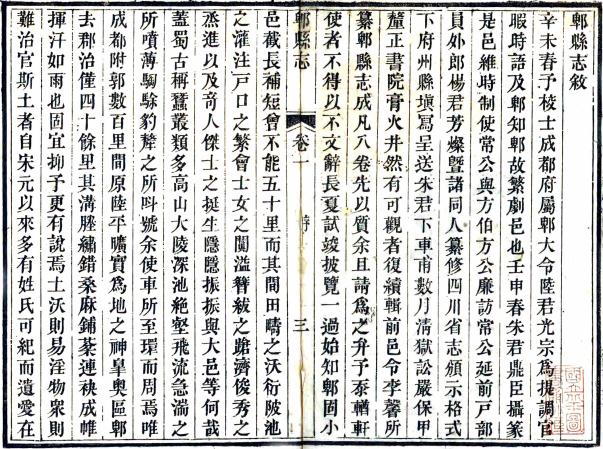 郫縣志敘
辛未春予校士成都府屬郫大令陸君光宗為提調官
暇時語及郫知郫故繁劇邑也壬申春朱君鼎臣攝篆
是邑維時制使常公與方伯方公廉訪常公延前戸部
員外郎楊君芳燦曁諸同人纂修四川省志頒示格式
下府州縣塡寫呈送朱君下車甫數月清獄訟嚴保甲
釐正書院膏火井然有可觀者復續輯前邑令李馨所
纂郫縣志成凡八卷先以質余且請為之弁予忝輶軒
使者不得以不文辭長夏試竣披覽一過始知郫固小
郫縣志 卷一 序 三
邑截長補短曾不能五十里而其間田疇之沃衍陂池
之灌注戸口之繁會士女之闐溢簪紱之蹌濟俊秀之
蒸進以及奇人傑士之挺生隱隱振振與大邑等何哉
蓋蜀古稱蠶叢類多高山大陵深池絶壑飛流急湍之
所噴薄騊駼豹犛之所㘞號余使車所至環而周焉唯
成都附郭數百里間原陸平曠實為地之神皐奧區郫
去郡治僅四十餘里其溝塍繡錯桑麻鋪棻連袂成帷
揮汗如雨也固宜抑予更有說焉土沃則易淫物衆則
難治官斯土者自宋元以來多有姓氏可紀而遺愛在